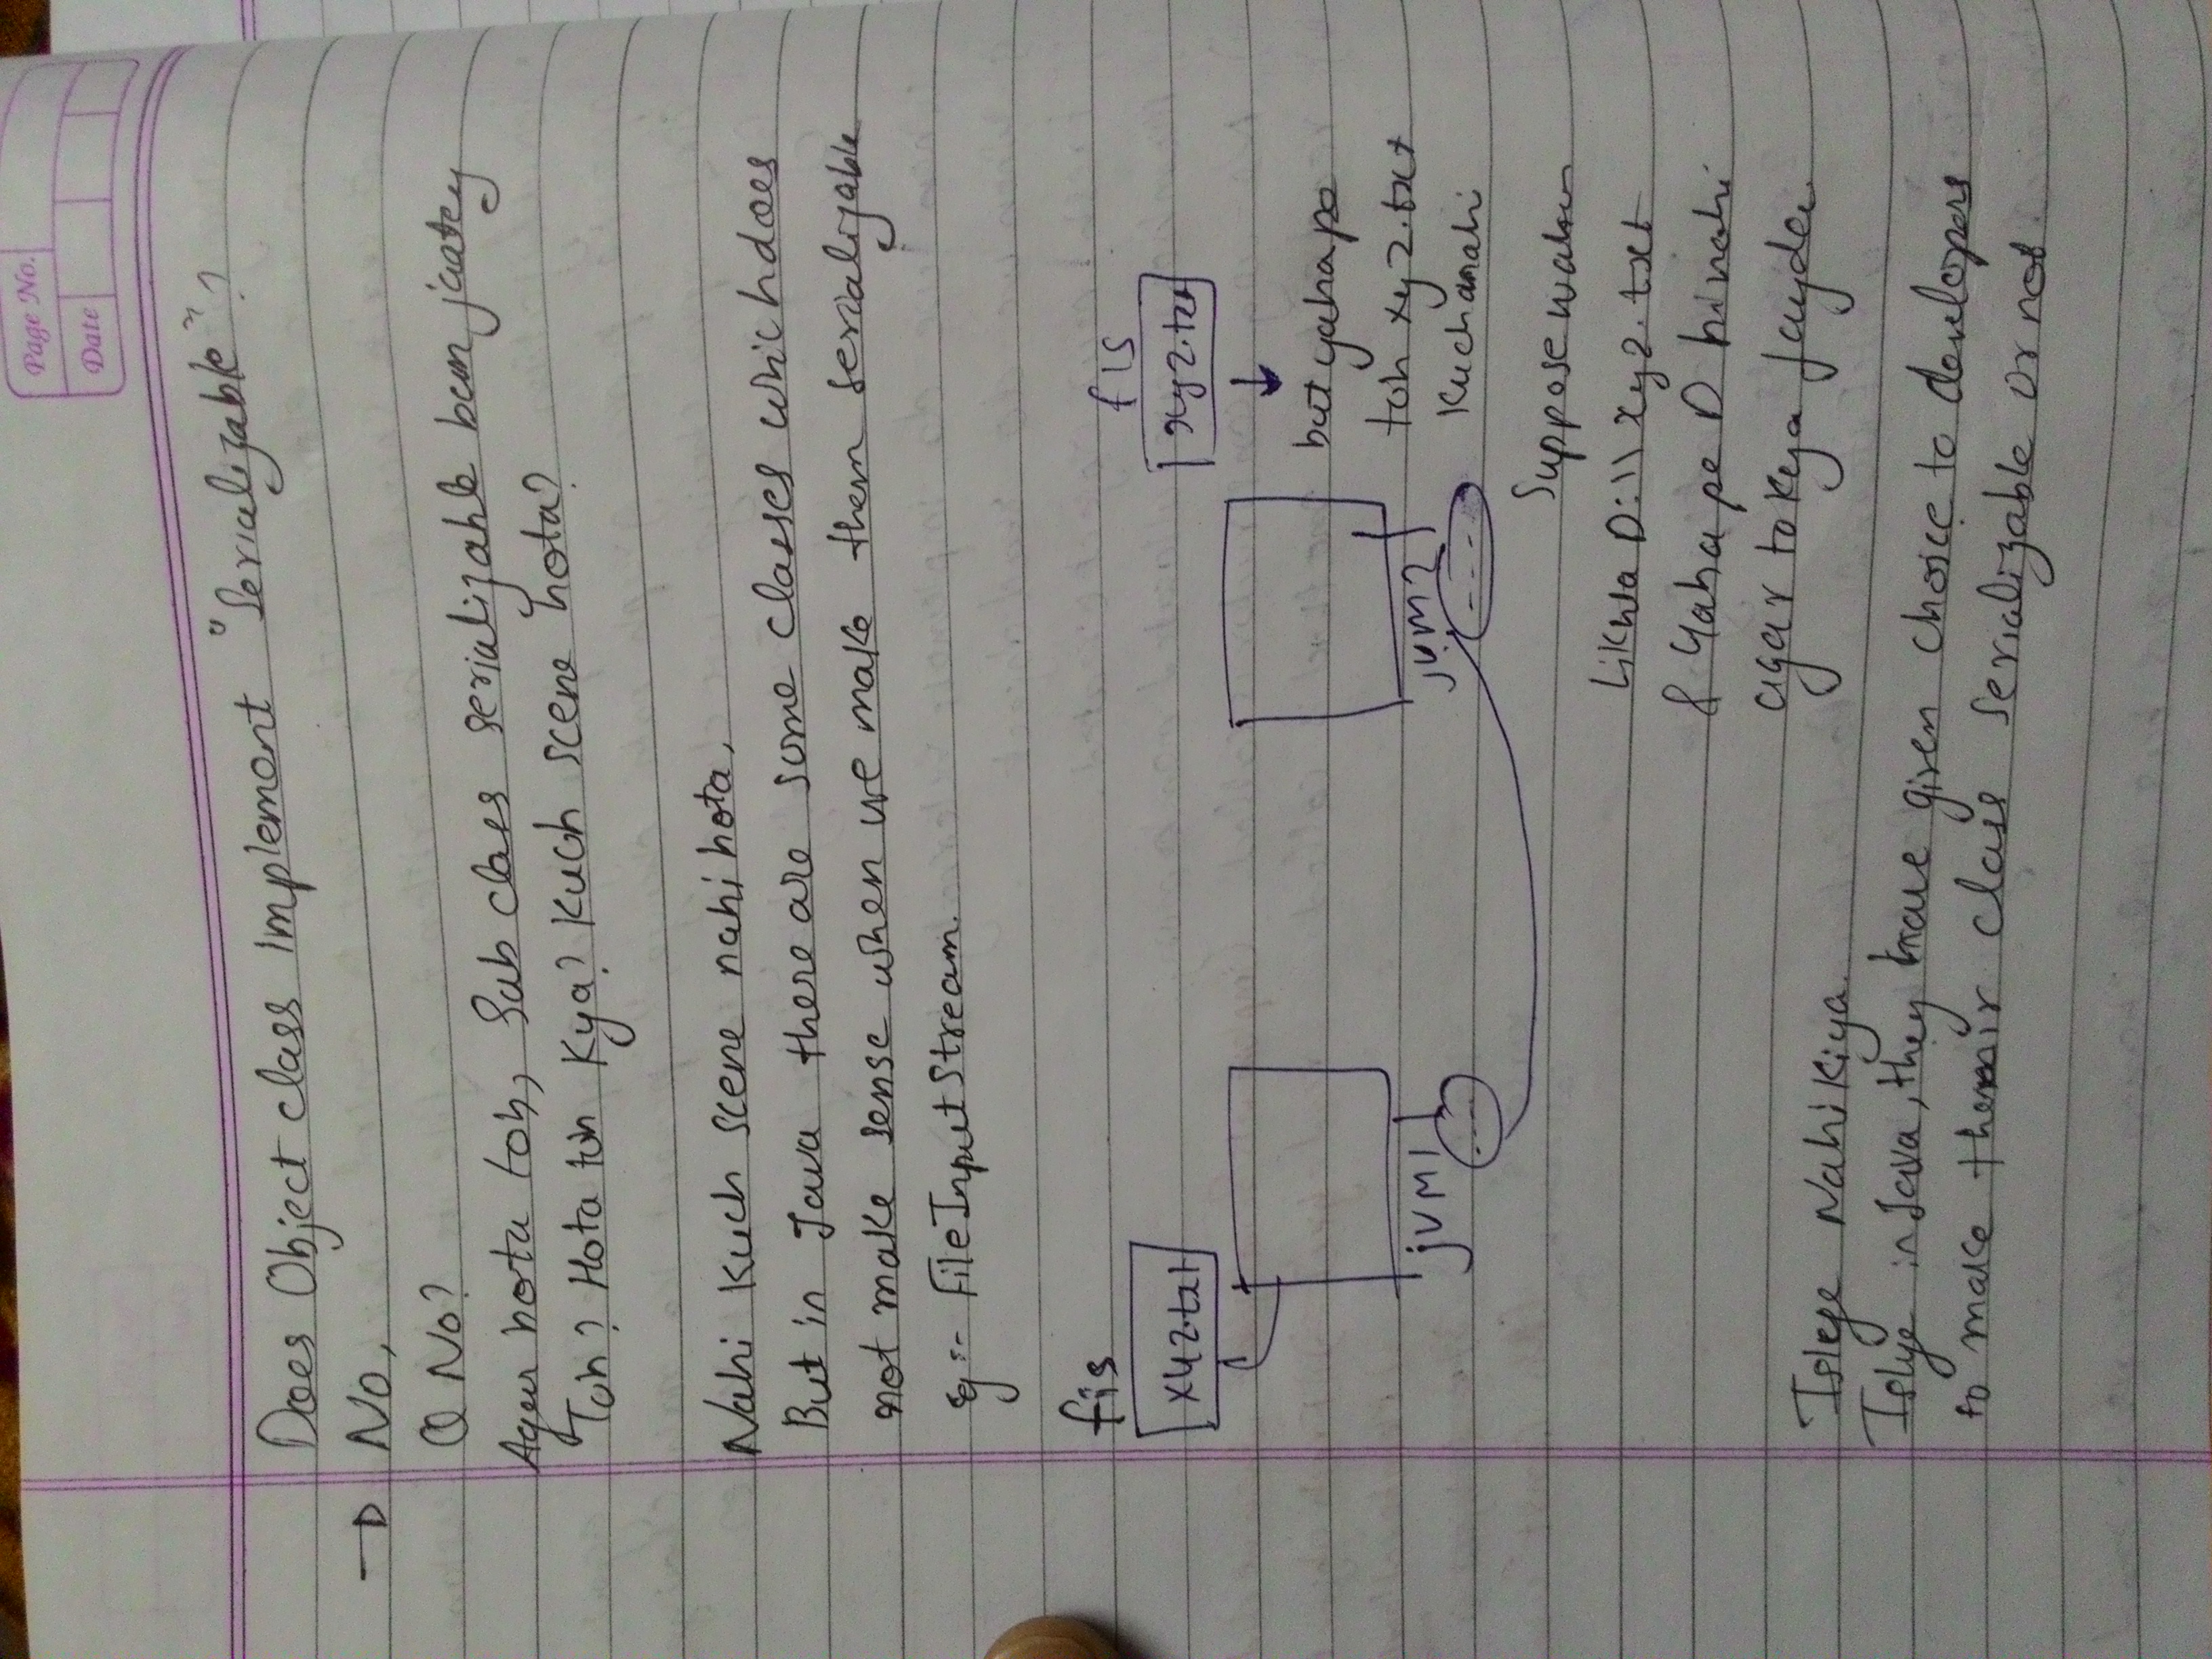 Page No.
Date
Does Object class implement "Serializable"?
→ No,
Q No?
Agar hota toh, Sub class serializable ban jaatey
Toh? Hota toh Kya? Kuch scene hota?
Nahi Kuch scene nahi hota,
But in Java there are some classes which does
not make sense when we make them serializable
eg:- FileInputStream.
fis
xyz.txt
fis
xyz.txt
JVM1
JVM2
---
----
but yaha pe
toh xyz.txt
Kucha nahi
Suppose waha
Likha D:\\xyz.txt
& Yaha pe D hi nahi
agar to kya fayda.
Islye Nahi Kiya.
Islye in Java, they have given choice to developers
to make their class Serializable or not.